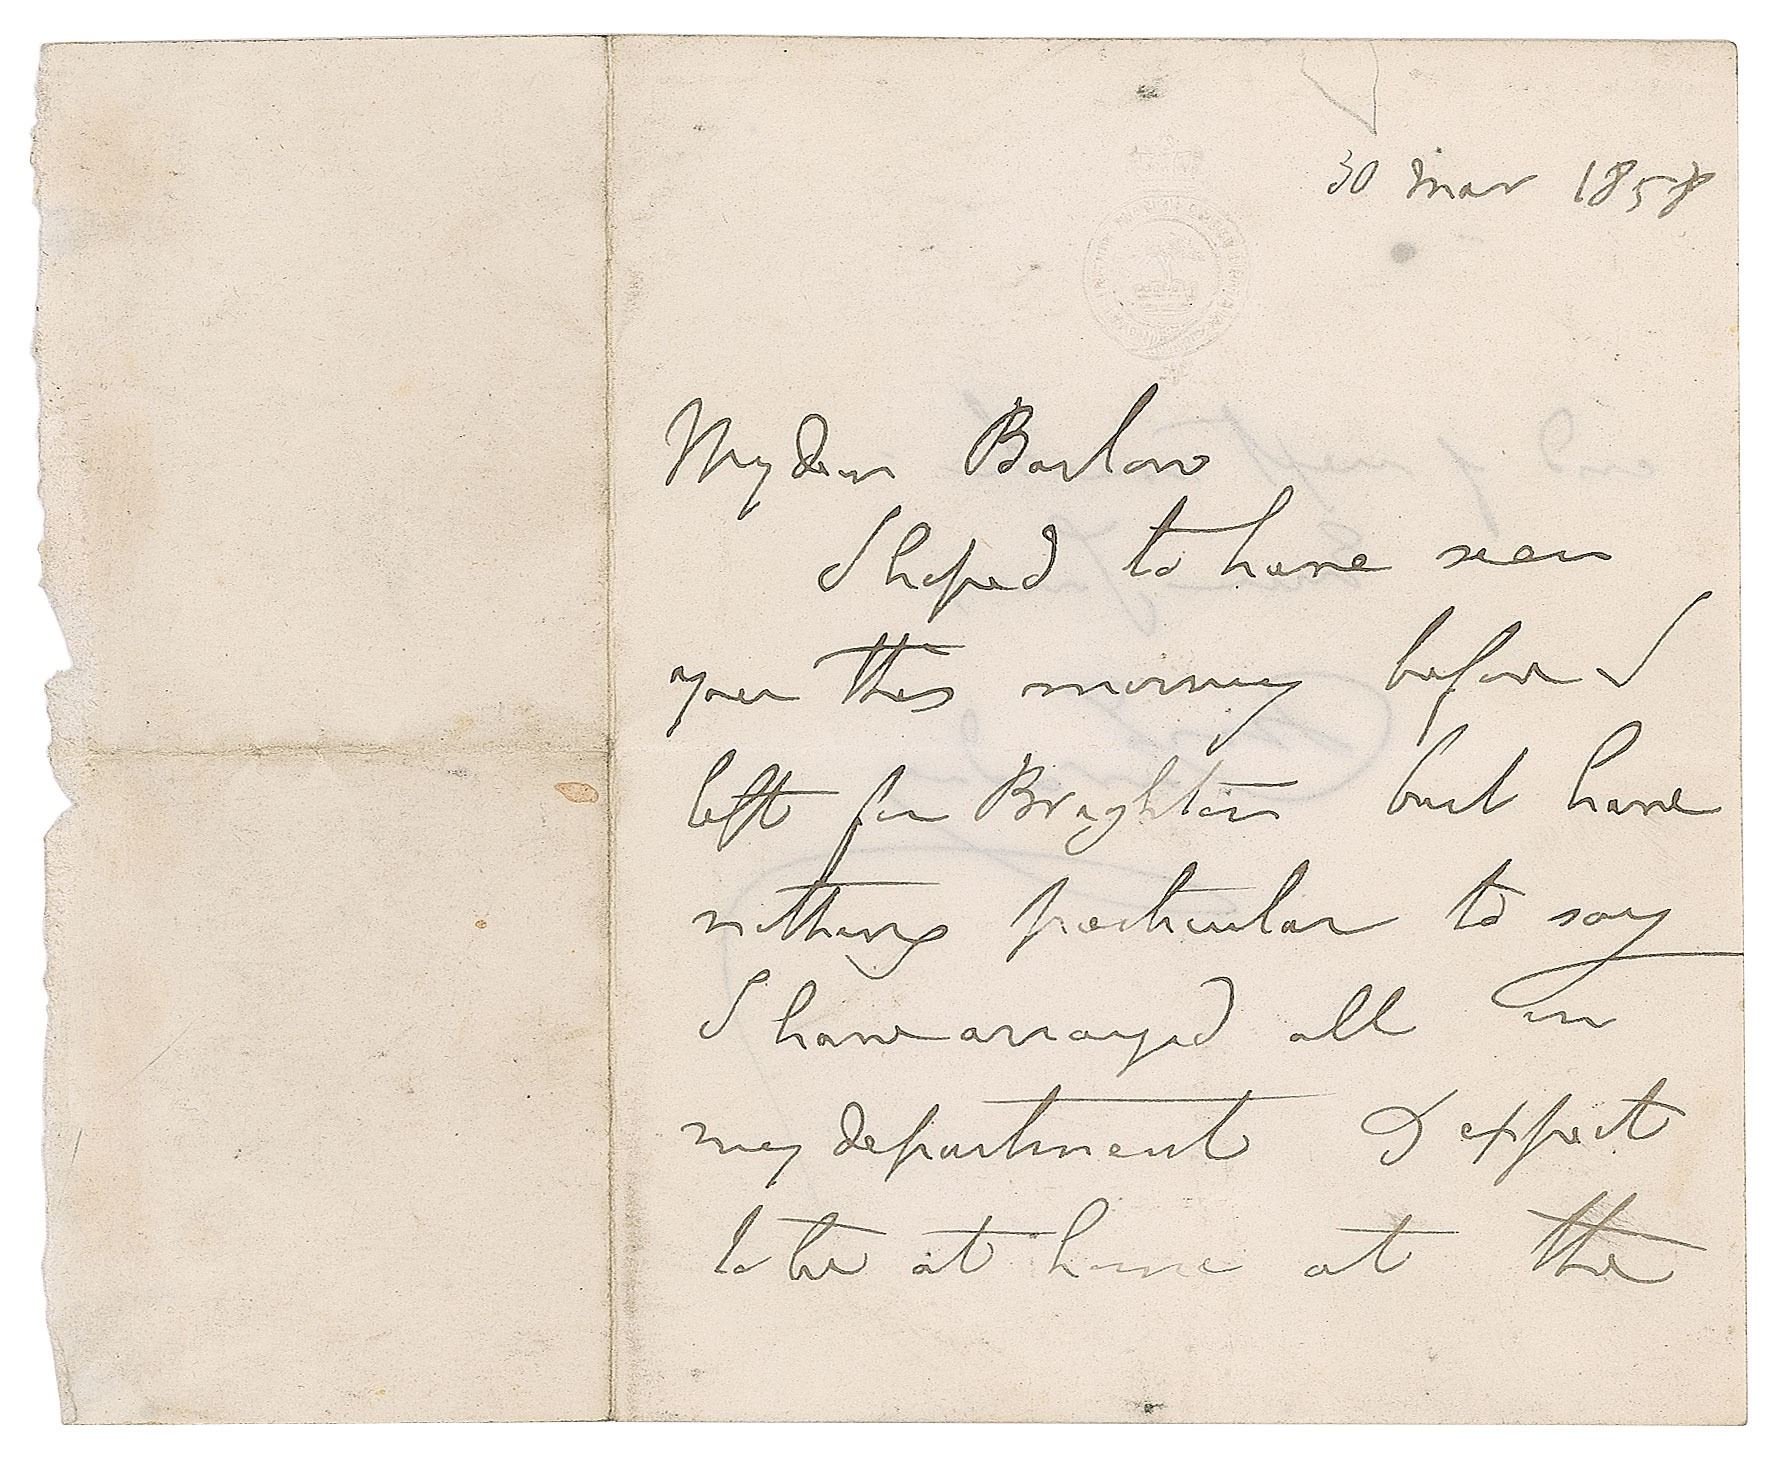 30 Mar 1858
My dear Barlow
I hoped to have seen
you this morning before I
left for Brighton but have
nothing particular to say
I have arranged all in
my department & expect
to be at home at the